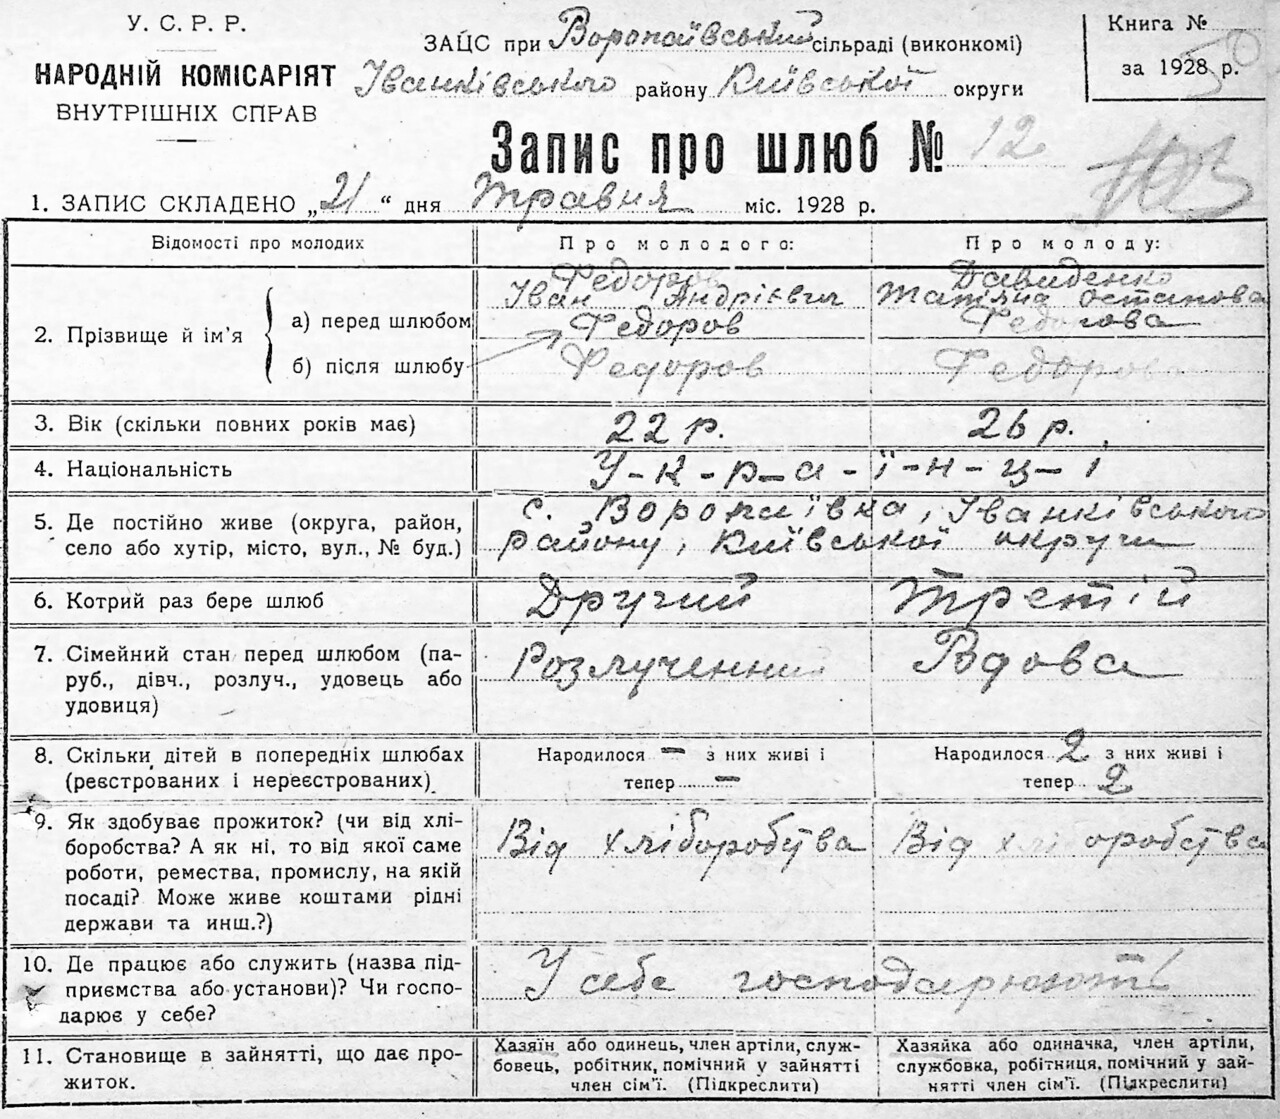 У. С. Р. Р.
НАРОДНІЙ КОМІСАРІЯТ
ВНУТРІШНІХ СПРАВ
ЗАЦС при Воропаївський сільраді (виконкомі)
Іванківського району Київської округи
Книга №
за 1928 р.
50
Запис про шлюб № 12
1. ЗАПИС СКЛАДЕНО „21“ дня Травня міс. 1928 р.
Відомості про молодих
Про молодого:
Про молоду:
2. Прізвище й ім’я
а) перед шлюбом
б) після шлюбу
Федоров
Іван Андрієвич
Федоров
Федоров
Давиденко
Татяна Остапова
Федорова
Федорова
3. Вік (скільки повних років має)
22 р.
26 р.
4. Національність
У-к-р-а-ї-н-ц-і
5. Де постійно живе (округа, район,
село або хутір, місто, вул., № буд.)
с. Воропаївка, Іванківського
району, Київської округи
6. Котрий раз бере шлюб
Другий
Третій
7. Сімейний стан перед шлюбом (па-
руб., дівч., розлуч., удовець або
удовиця)
Розлученний
Вдова
8. Скільки дітей в попередніх шлюбах
(реєстрованих і нереєстрованих)
Народилося — з них живі і
тепер —
Народилося 2 з них живі і
тепер 2
9. Як здобуває прожиток? (чи від хлі-
боробства? А як ні, то від якої саме
роботи, ремества, промислу, на якій
посаді? Може живе коштами рідні
держави та инш.?)
Від хліборобства
Від хліборобства
10. Де працює або служить (назва під-
приємства або установи)? Чи госпо-
дарює у себе?
У себе господарюють
11. Становище в зайнятті, що дає про-
житок.
Хазяїн або одинець, член артіли, служ-
бовець, робітник, помічний у зайнятті
член сім’ї. (Підкреслити)
Хазяйка або одиначка, член артіли,
службовка, робітниця, помічний у зай-
нятті член сім’ї. (Підкреслити)